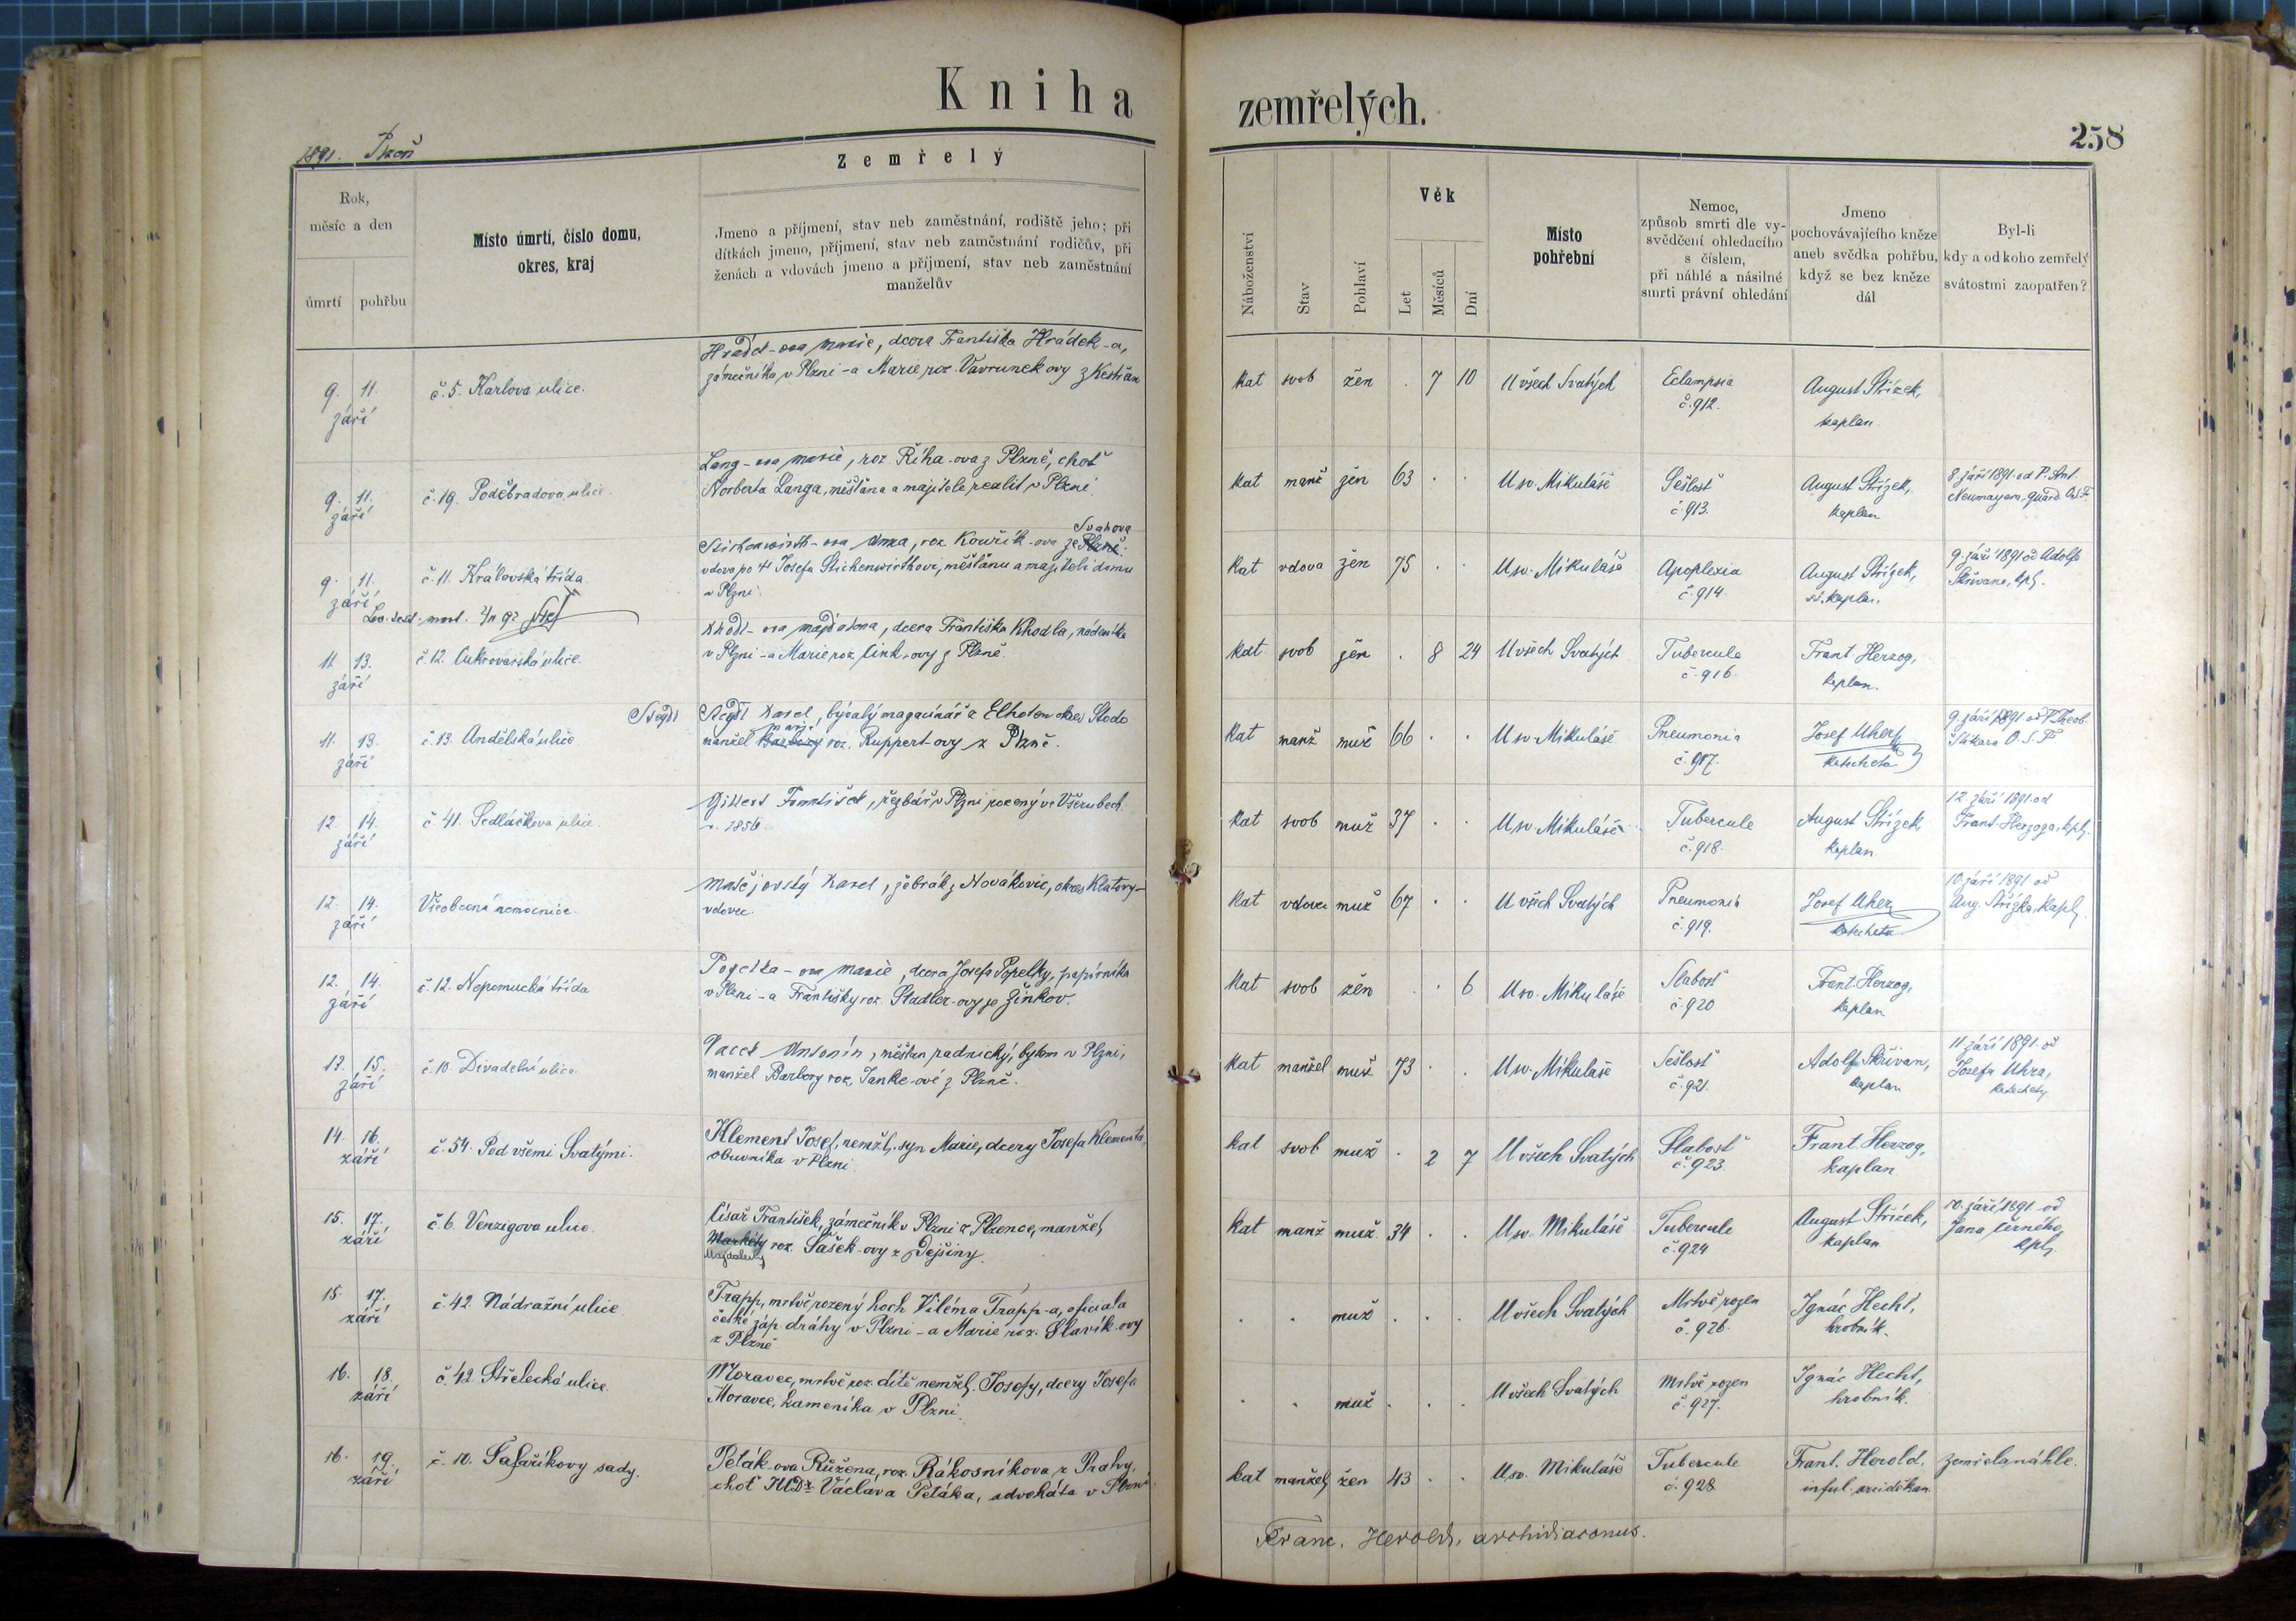 Kniha zemřelých.
258
1891. Plzeň
Zemřelý
Rok,
měsíc a den
úmrtí
pohřbu
Místo úmrtí, číslo domu,
okres, kraj
Jmeno a příjmení, stav neb zaměstnání, rodiště jeho; při
dítkách jmeno, příjmení, stav neb zaměstnání rodičův, při
ženách a vdovách jmeno a příjmení, stav neb zaměstnání
manželův
Náboženství
Stav
Pohlaví
Věk
Let
Měsíců
Dní
Místo
pohřební
Nemoc,
způsob smrti dle vy-
svědčení ohledacího
s číslem,
při náhlé a násilné
smrti právní ohledání
Jmeno
pochovávajícího kněze
aneb svědka pohřbu,
když se bez kněze
dál
Byl-li
kdy a od koho zemřelý
svátostmi zaopatřen?
9. 11.
září
č. 5. Karlova ulice.
Hrádek-ova Marie, dcera Františka Hrádek-a,
zámečníka v Plzni -a Marie roz. Vavrunek ovy z Kestřan
kat svob žen . 7 10 U všech Svatých
Eclampsia
č. 912.
August Střízek,
kaplan.
9. 11.
září
č. 19. Poděbradova ulice.
Lang-ova Marie, roz. Říha-ova z Plzně, choť
Norberta Langa, měšťana a majitele realit v Plzni.
kat manž žen 63 . . U sv. Mikuláše
Sešlosť
č. 913.
August Střízek,
kaplan
8. září 1891. od P. Ant.
Neumayera, quard. O.S.F.
9. 11.
září
č. 11. Královská třída.
Svahova
Stichenwirth-ova Anna, roz. Kouřík-ova ze Plzně.
vdova po † Josefu Stichenwirthovi, měšťanu a majiteli domu
v Plzni.
kat vdova žen 75 . . U sv. Mikuláše
Apoplexia
č. 914.
August Střízek,
kaplan.
9. září 1891 od Adolfa
Skřivana, kpl.
11. 13.
září
č. 12. Cukrovarská ulice.
Khodl-ova Magdalena, dcera Františka Khodla, nádeníka
v Plzni -a Marie roz. Cink-ovy z Plzně.
kat svob žen . 8 24 U všech Svatých
Tubercule
č. 916.
Frant. Herzog,
kaplan.
11. 13.
září
č. 13. Andělská ulice
Stegdl
Stegdl Karel, bývalý magacinář z Elhoten okres Stodo
Marie
manžel Barbory roz. Ruppert-ovy z Plzně.
kat manž muž 66 . . U sv. Mikuláše
Pneumonia
č. 917.
Josef Uher
katecheta
9. září 1891 od P. Theob.
O.S.F.
12. 14.
září
č. 41. Sedláčkova ulice.
František, řezbář v Plzni rozený ve Všerubech.
r. 1856.
kat svob muž 37 . . U sv. Mikuláše
Tubercule
č. 918.
August Střízek,
kaplan
12. září 1891. od
Frant. Herzoga, kpl.
12. 14.
září
Všeobecná nemocnice.
Matějovský Karel, žebrák z Novákovic, okres Klatovy-
vdovec.
kat vdovec muž 67 . . U všech Svatých
Pneumonia
č. 919.
Josef Uher
katecheta
10. září 1891 od
Aug. Střízka, kapl.
12. 14.
září
č. 12. Nepomucká třída
Popelka-ova Marie, dcera Josefa Popelky, papírníka
v Plzni -a Františky roz. Stadler-ovy ze Žinkov.
kat svob žen . . 6 U sv. Mikuláše
Slabosť
č. 920
Frant. Herzog,
kaplan
13. 15.
září
č. 10. Divadelní ulice.
Vacek Antonín, měšťan radnický, bytem v Plzni,
manžel Barbory roz. Janke-ové z Plzně.
kat manžel muž 73 . . U sv. Mikuláše
Sešlosť
č. 921.
Adolf Skřivan,
kaplan
11. září 1891. od
Josefa Uhra,
katechety
14. 16.
září
č. 54. Pod všemi Svatými.
Klement Josef, nemžl. syn Marie, dcery Josefa Klementa,
obuvníka v Plzni.
kat svob muž . 2 7 U všech Svatých
Slabosť
č. 923.
Frant. Herzog,
kaplan
15. 17.
září
č. 6. Venzigova ulice.
Císař František, zámečník v Plzni z Plzence, manžel
Markéty roz. Sašek-ovy z Dejšiny.
Magdaleny
kat manž muž 34 . . U sv. Mikuláše
Tubercule
č. 924
August Střízek,
kaplan
10. září 1891. od
Jana Černého,
kpl.
15. 17.
září
č. 42. Nádražní ulice
Trapp, mrtvě rozený hoch Viléma Trapp-a, oficiala
české záp. dráhy v Plzni -a Marie roz. Slavík-ovy
z Plzně
. . muž . . . U všech Svatých
Mrtvě rozen
č. 926.
Ignác Hecht,
hrobník.
16. 18.
září
č. 42. Střelecká ulice.
Moravec, mrtvě roz. dítě nemžl. Josefy, dcery Josefa
Moravce, kameníka v Plzni.
. . muž . . . U všech Svatých
Mrtvě rozen
č. 927.
Ignác Hecht,
hrobník.
16. 19.
září
č. 10. Šafaříkovy sady.
Peták-ova Růžena, roz. Rákosníkova z Prahy,
choť JUDr. Václava Petáka, advokáta v Plzni.
kat manžel. žen 43 . . U sv. Mikuláše
Tubercule
č. 928
Frant. Herold,
inful. arciděkan.
zemřela náhle.
Franc. Herold, archidiaconus.